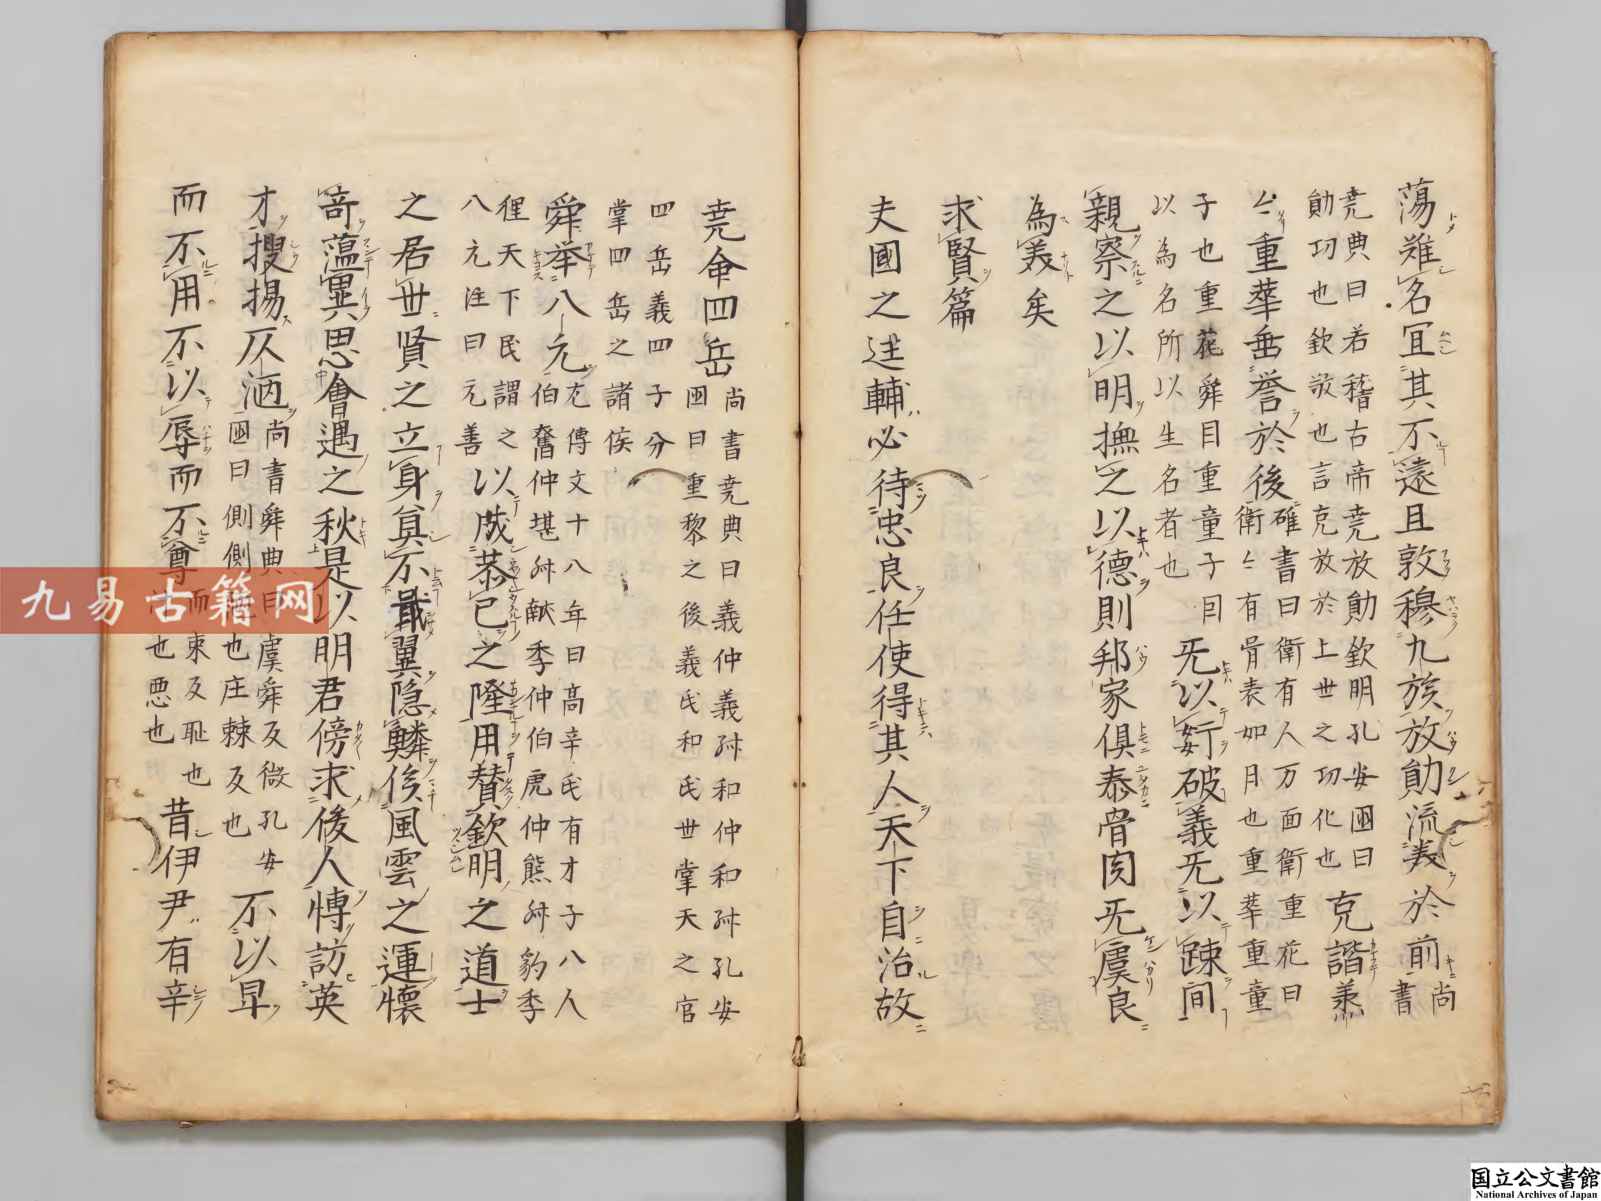 蕩難名宜其不遠且敦穆九族放勛流美於前尚書
堯典曰若稽古帝堯放勛欽明孔安國曰
勛功也欽敬也言克放於上世之功化也 克諧羕
〻重華垂誉於後 雒書曰衛有人万面衛重花曰
衛〻有骨表如月也重華重童
子也重花舜目重童子目
以為名所以生名者也 旡以姧破義旡以踈間
親察之以明撫之以德則邦家俱泰骨肉旡虞良
為美矣
求賢篇
夫國之迬輔必待忠良任使得其人天下自治故
堯命四岳 尚書堯典曰義仲義叔和仲和叔孔安
國曰重黎之後義氏和氏世掌天之官
四岳義四子分
掌四岳之諸侯
舜举八元 左傳文十八年曰高辛氏有才子八人
伯奮仲堪叔献季仲伯虎仲熊叔豹季
狸天下民謂之
八元注曰元善 以成恭已之隆用賛欽明之道士
之居世賢之立身莫不戢翼隐鱗俟風雲之運懷
竒蘊異思會遇之秋是以明君傍求俊人愽訪英
才搜揚仄洒 尚書舜典曰虞舜反微孔安
國曰側側也庄棘反也 不以早
而不用不以辱而不尊 而束反耻也
也悪也 昔伊尹有辛
九易古籍网
国立公文書館
National Archives of Japan